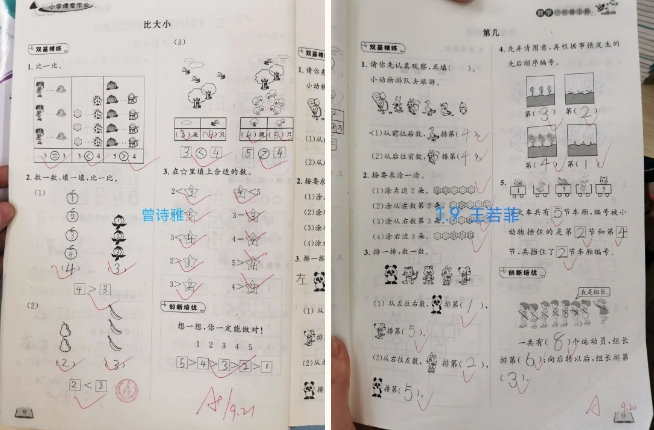 小学课堂作业
比大小
双基精练
1. 比一比。
3 = 3
3 < 4
5 > 4
2. 数一数,填一填,比一比。
(1)
4
3
4 > 3
(2)
2
3
2 < 3
(3)
(3)只 (4)只
(4)只 (5)只
3 < 4
5 > 4
3. 在☆里填上合适的数。
创新培优
想一想,你一定能做对!
1 2 3 4 5
5>4>3>2>1
A 9.21
曾诗雅
双基精练
1. 请你
(1)从
(2)从
(1)涂
(2)涂
(3)涂
3. 排一
左
(1)从
(2)从
数学
第几
双基精练
1. 请你先认真观察,再填( )。
小动物排队去旅游。
(1)从前往后数,排第(4)。
(2)从后往前数,排第(4)。
2. 按要求涂一涂。
(1)涂左边2条。
(2)涂从左数第2条。
(3)涂从右数第3条。
(4)涂右边2条。
3. 排一排,数一数。
(1)从左往右数,排第(1),
排第(5)。
(2)从右往左数,排第(2),
排第(5)。
4. 先弄清图意,再根据事情发生的
先后顺序编号。
第(3) 第(2)
第(4) 第(1)
5.
火车共有5节车厢,编号被小
动物挡住的是第2节和第4
节,共挡住了2节车厢编号。
创新培优
我是组长
一共有(8)个运动员,组长
排第(6);向后转以后,组长排第
(3)。
A 9.20
19 王若菲